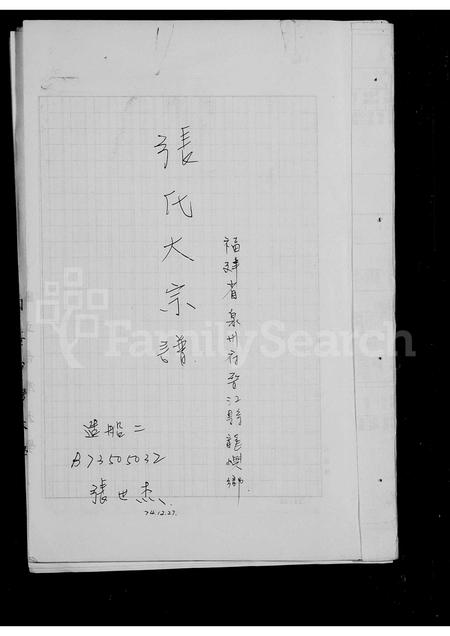 福建省泉州府晋江縣龍塘鄉
張氏大宗譜
造船二
A73505032
張世杰
74.12.27.
FamilySearch